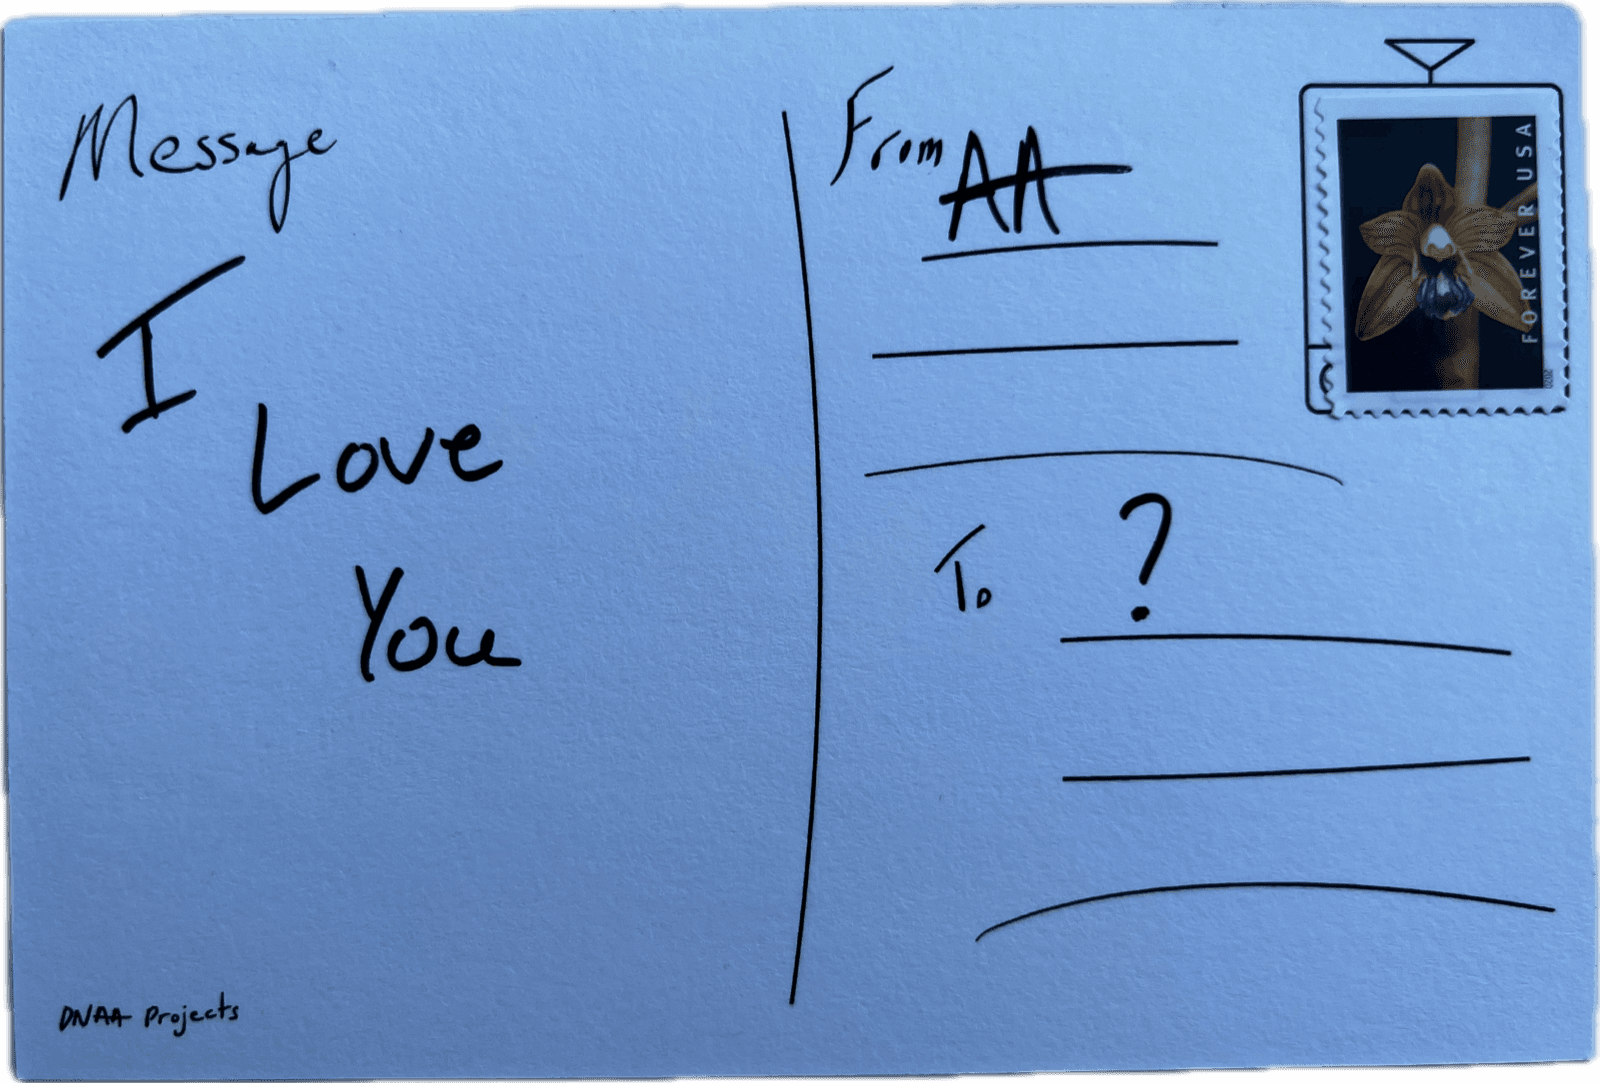 Message
I
Love
You
DNAA Projects
From AA
To ?
FOREVER USA
2020